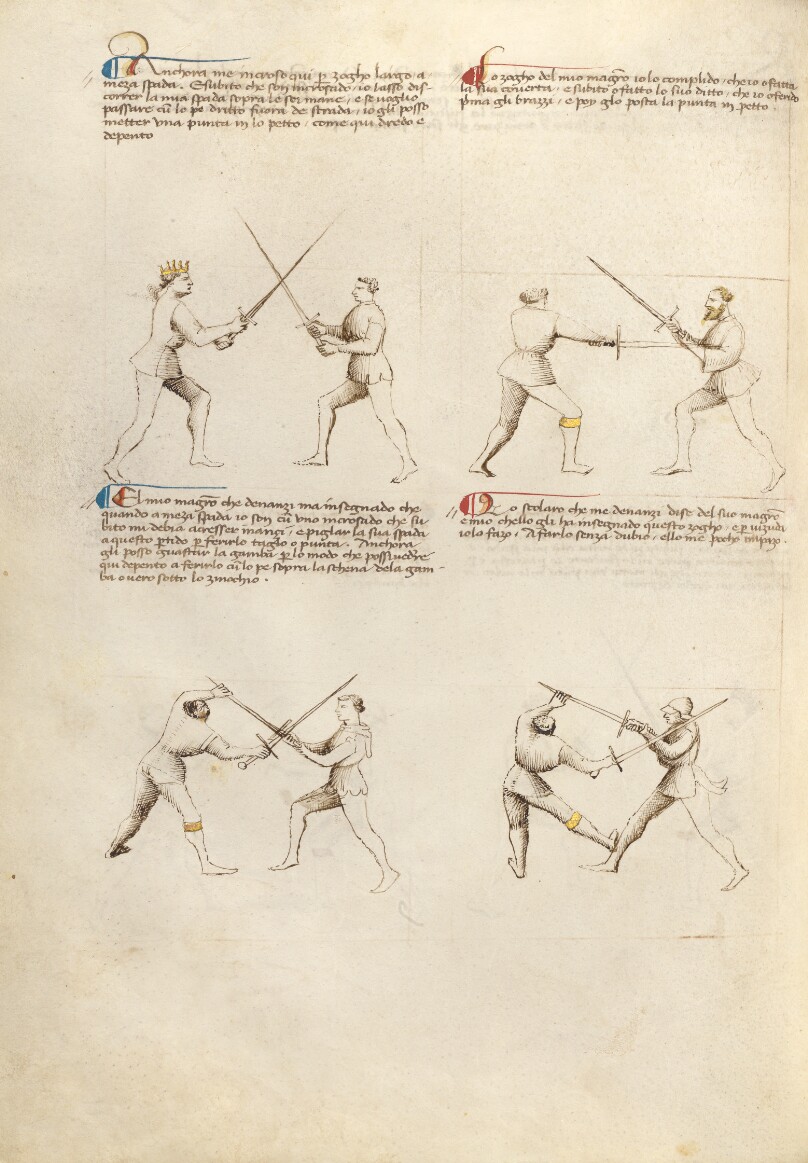 Anchora me incroso qui per zogho largo a
meza spada. E subito che son incrosado, io lasso dis-
correr la mia spada sopra le soi mane, e se voglio
passare cum lo pe dritto fuora de strada, io gli posso
metter una punta in lo petto, come qui dredo e
depento
Lo zogho del mio magro io lo complido, che io o fatta
la sua coverta, e subito o fatto lo suo ditto, che io o ferido
prima gli brazzi, e poy glo posta la punta in petto.
El mio magro che denanzi ma insegnado che
quando a meza spada io son cum uno incrosado che su-
bito mi debia acresser inanci, e piglar la sua spada
a questo partido per ferirlo taglo o punta. Anchora
gli posso guastar la gamba per lo modo che possi vedere
qui depento a ferirlo cum lo pe sopra la schena dela gam-
ba overo sotto lo zinochio.
Lo scolaro che me denanzi dise del suo magro
e mio chello gli ha insegnado questo zogho, e per vizudi
io lo fazo. A farlo senza dubio, ello me pocho impazo.